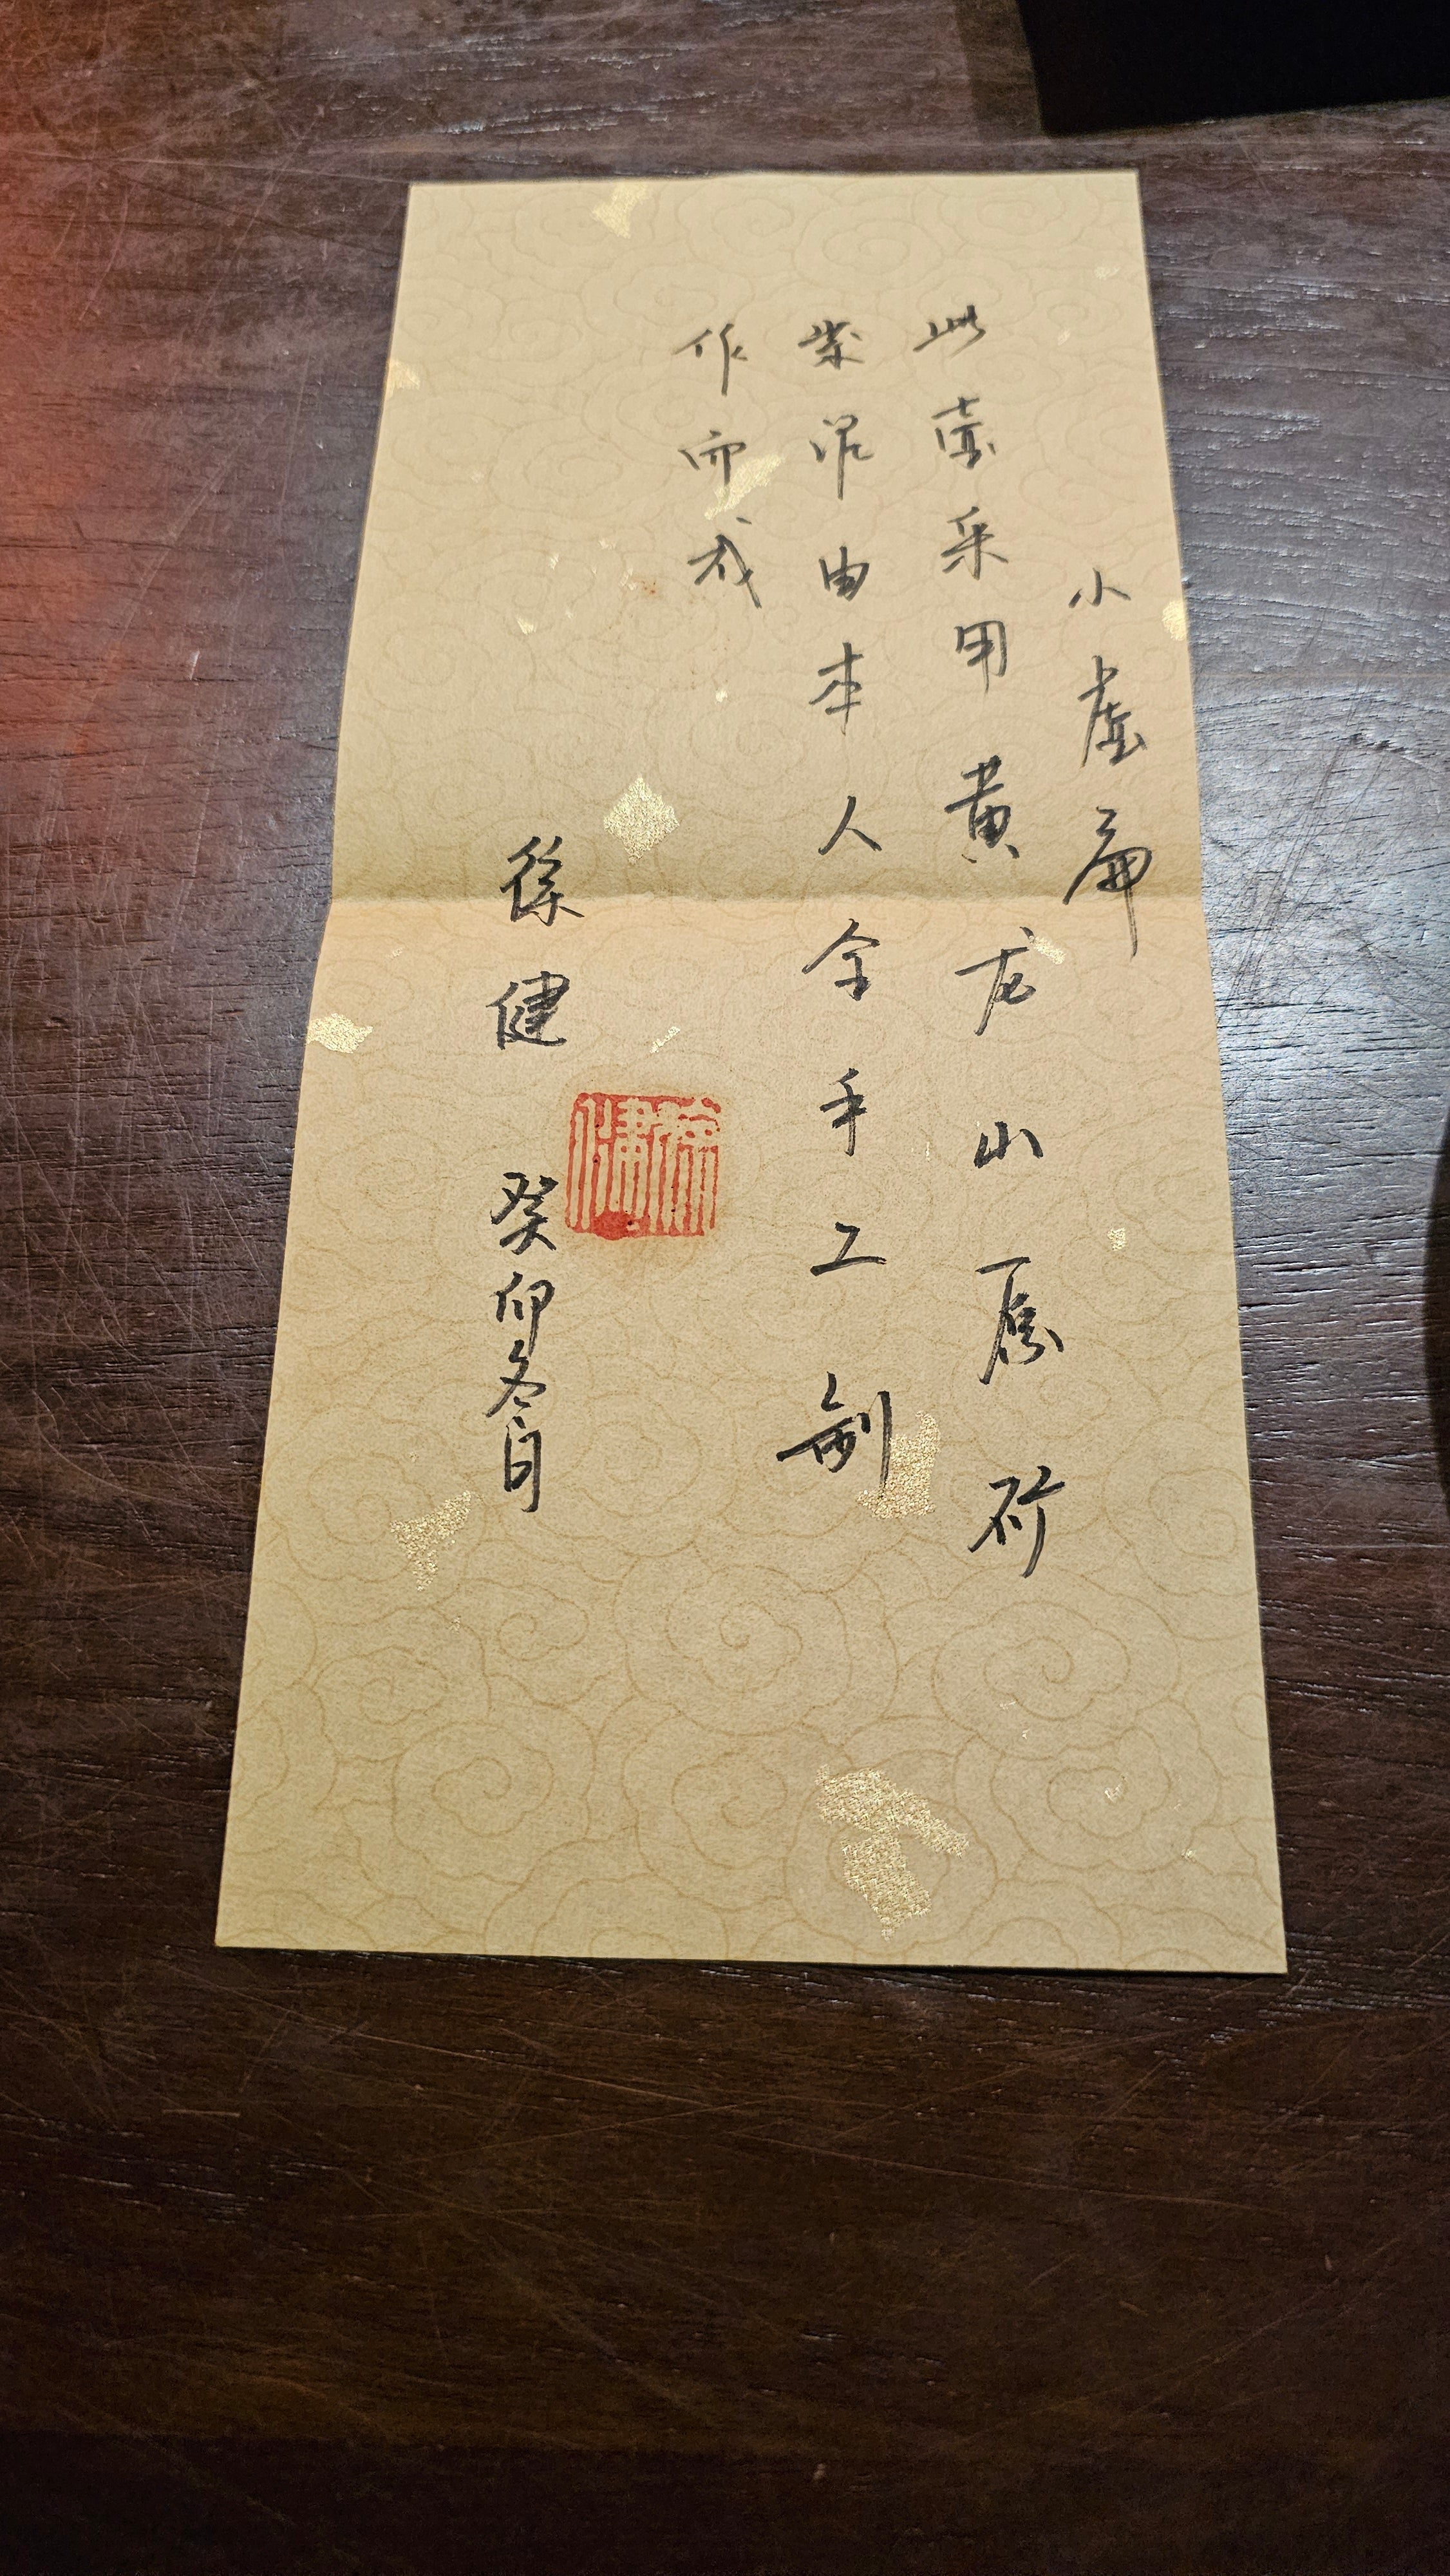 小虚扁
此壶采用黄龙山原矿
紫泥由本人全手工制
作而成
徐健
癸卯冬月
徐健